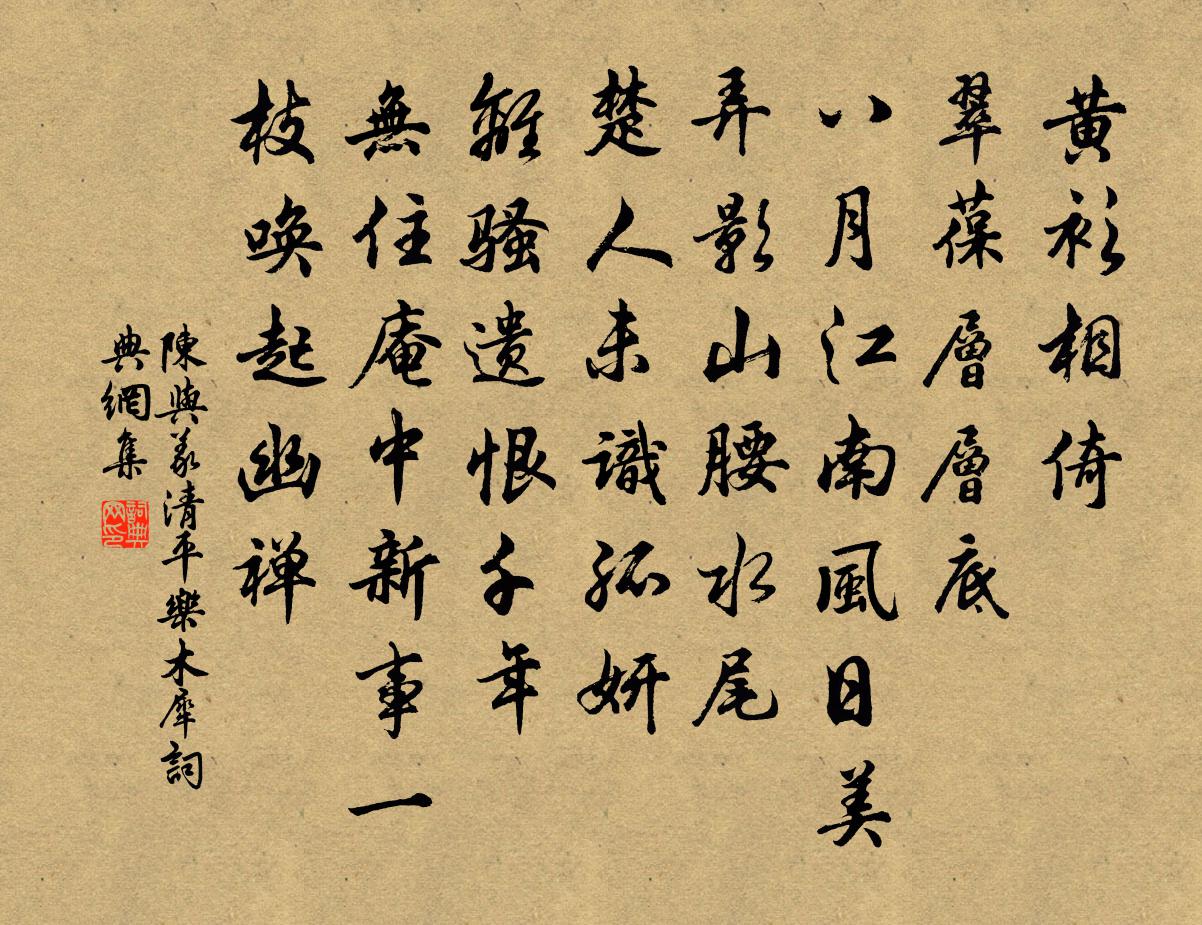 黄衫相倚
翠葆層層底
八月江南風日美
弄影山腰水尾
楚人未識孤妍
離騷遺恨千年
無住庵中新事一
枝喚起幽禅
陳與義清平樂木犀詞
典網集
詞典网印